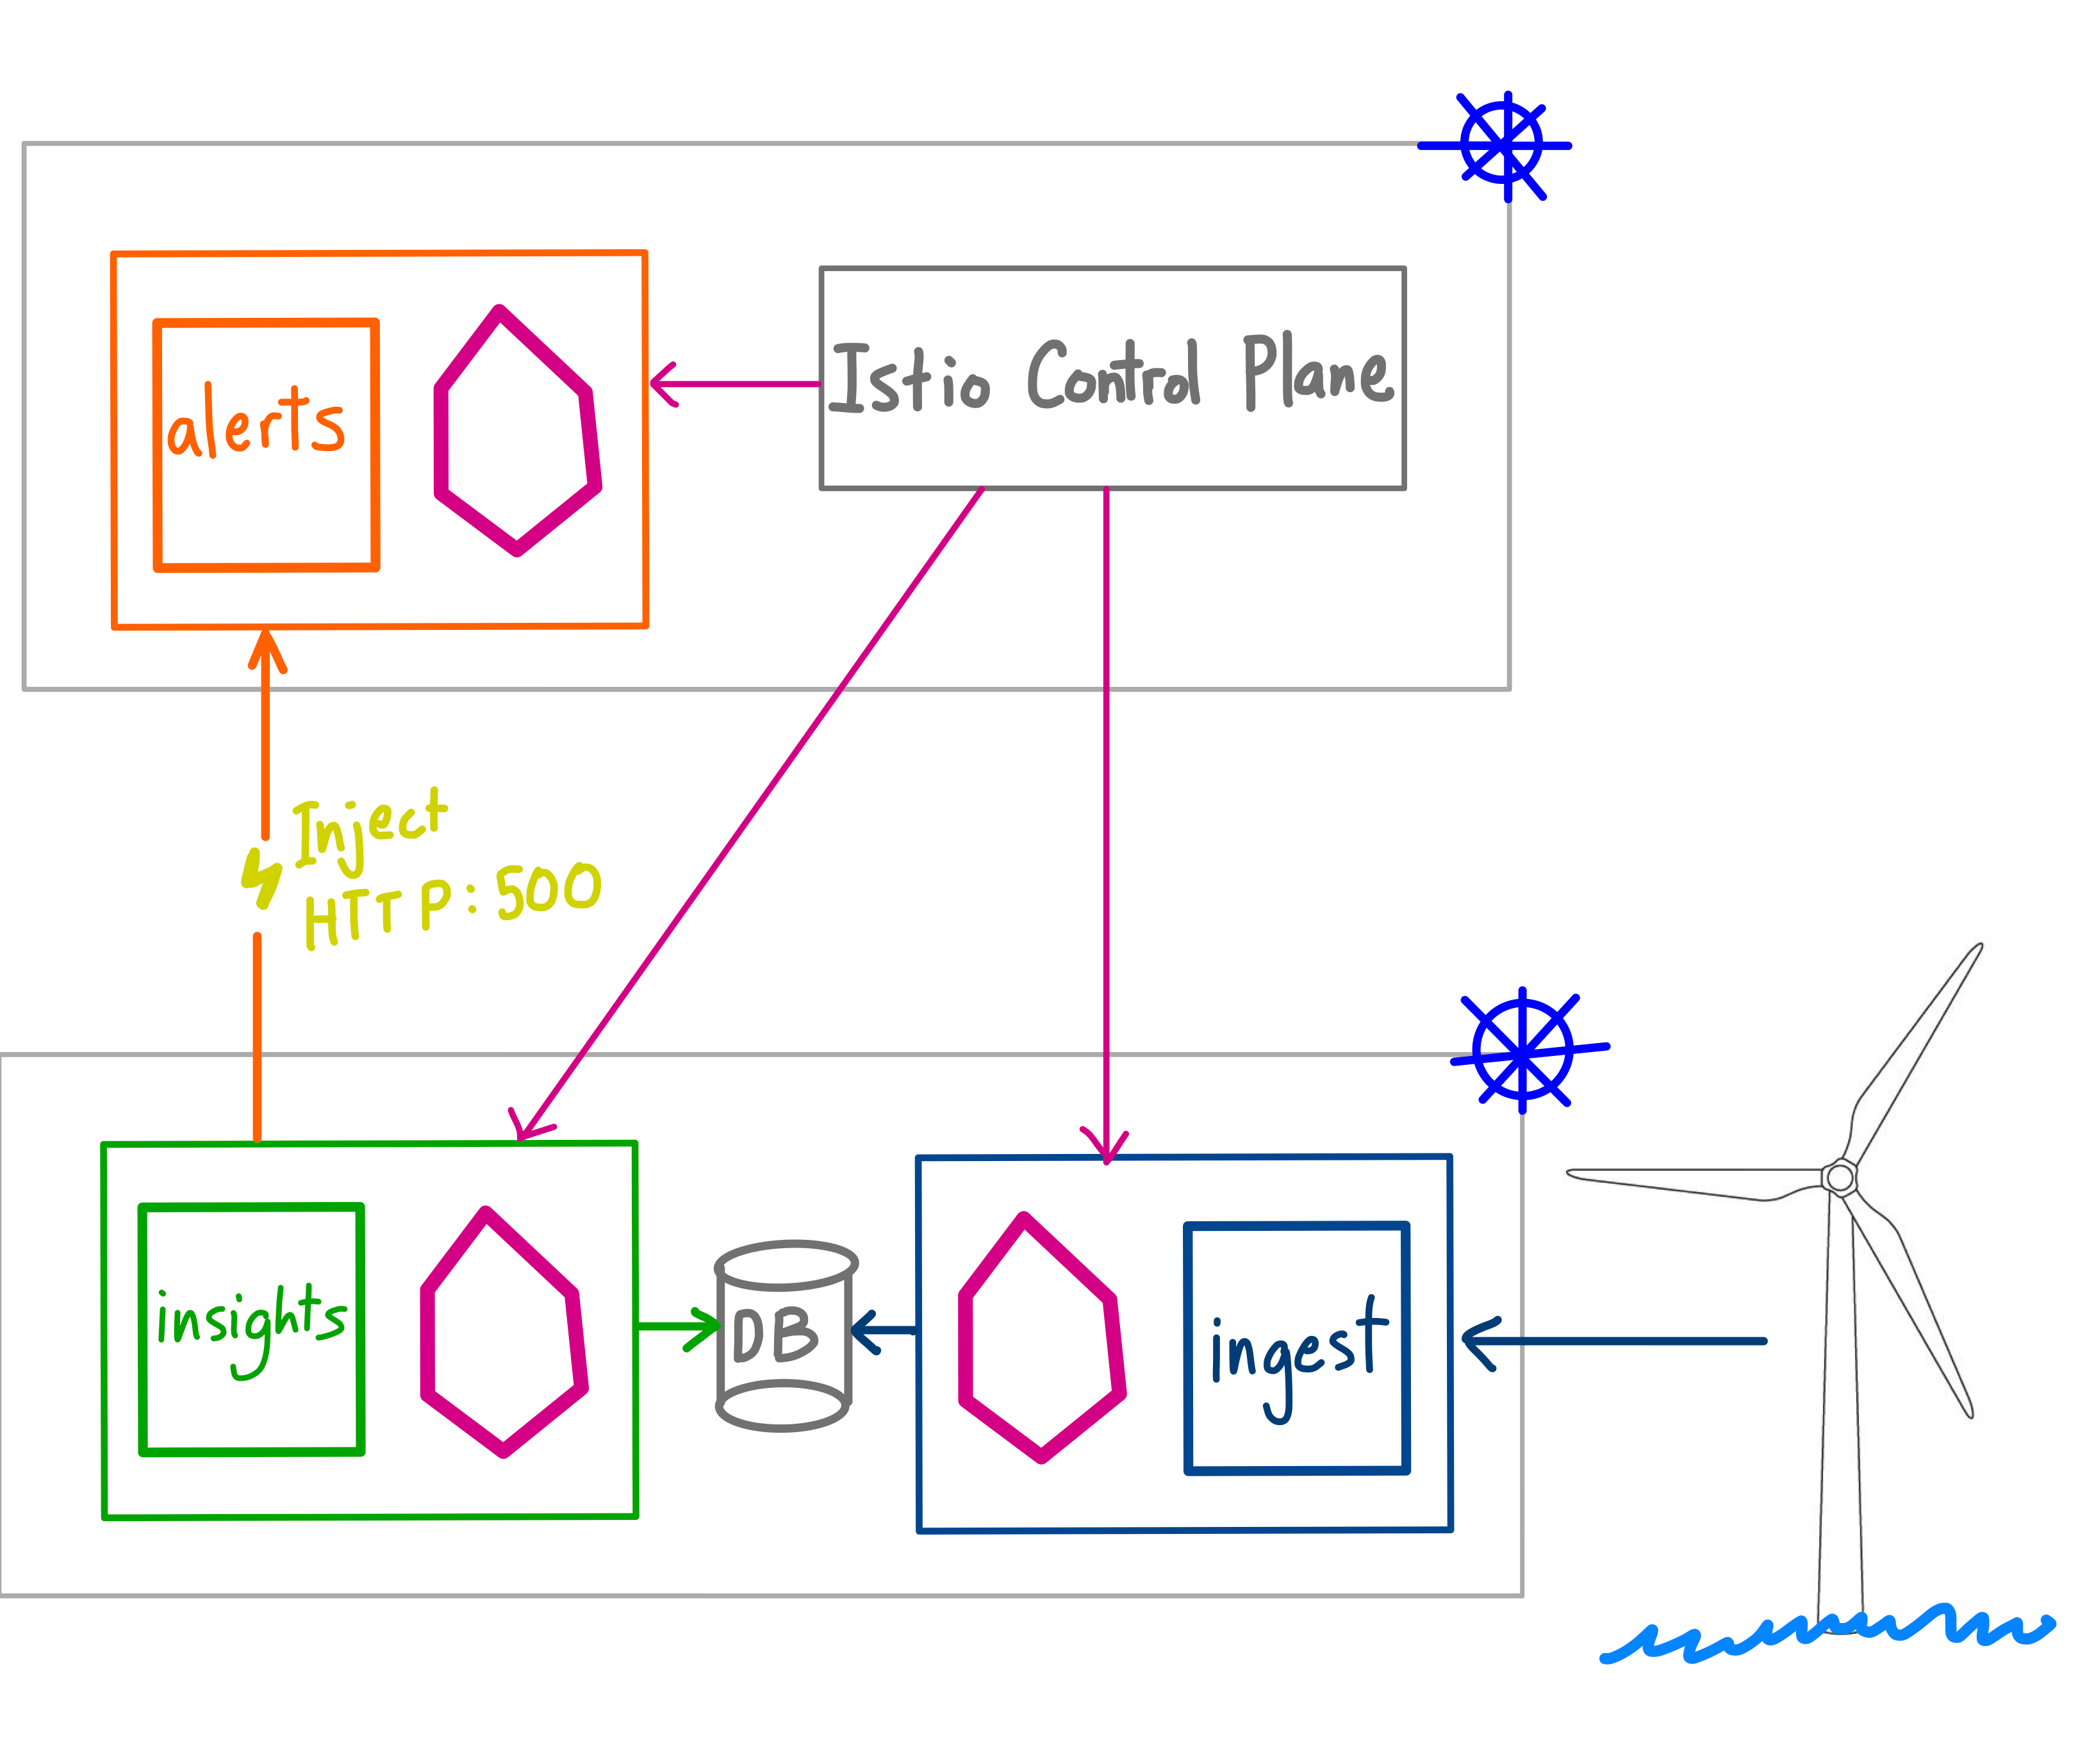 alerts
Istio Control Plane
Inject
HTTP: 500
insights
DB
ingest